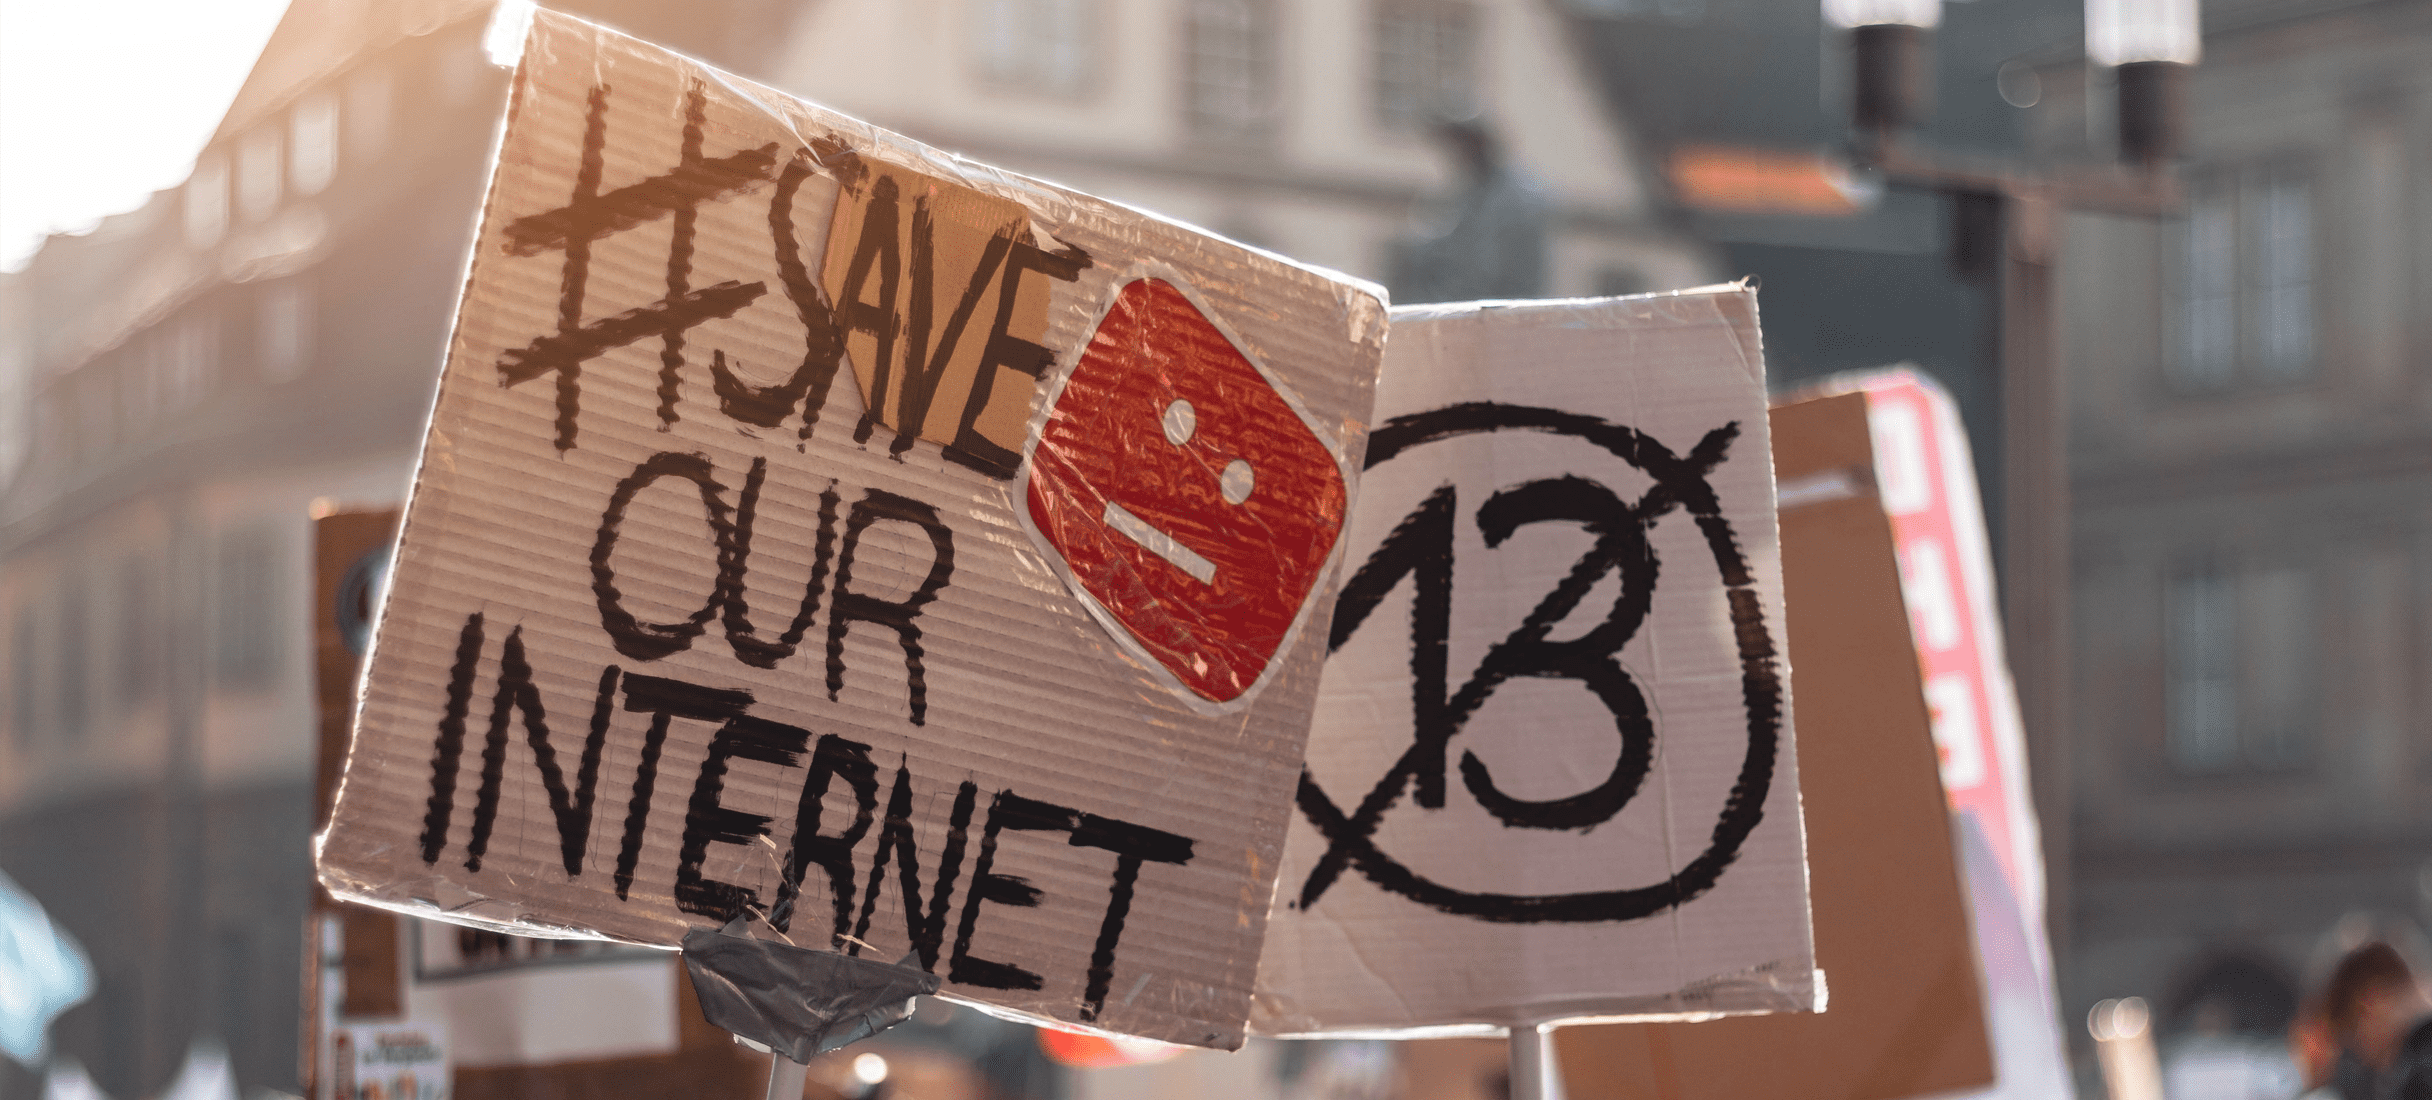 #SAVE
OUR
INTERNET
13